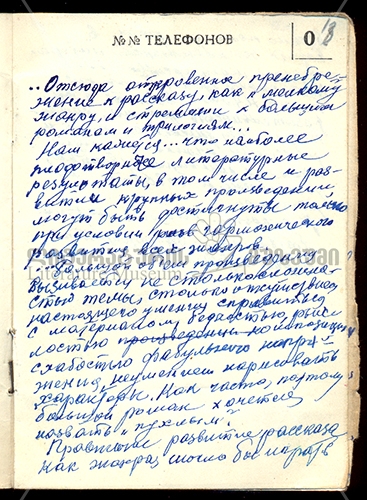 №№ ТЕЛЕФОНОВ
О
18
..Отсюда откровенное пренебре-
жение к рассказу, как к малому
жанру, и стремление к большим
романам и трилогиям...
Нам кажется... что наиболее
плодотворные литературные
результаты, в том числе и раз-
витие крупных произведений,
могут быть достигнуты только
при условии гармонического
развития всех жанров.
Большой произведения
вызывается не столько сложно-
стью темы, столько отсутствием
настоящего умения справиться
с материалом, бедностью, рых-
лостью произведения композиции,
слабостью фабульного напря-
жения, неумением нарисовать
характеры. Как часто, поэтому,
большой роман хочется
назвать "пухлым".
Правильное развитие рассказа
как жанра могло бы играть
Literature Museum